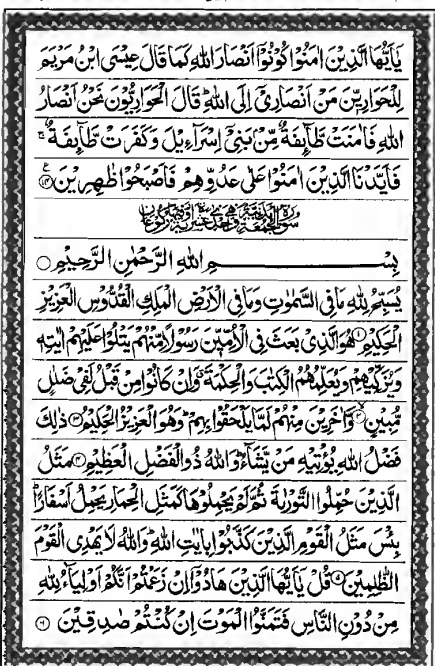 يٰۤاَيُّهَا الَّذِيْنَ اٰمَنُوْا كُوْنُوْۤا اَنْصَارَ اللّٰهِ كَمَا قَالَ عِيْسَى ابْنُ مَرْيَمَ
لِلْحَوَارِيّٖنَ مَنْ اَنْصَارِيْۤ اِلَى اللّٰهِ ؕ قَالَ الْحَوَارِيُّوْنَ نَحْنُ اَنْصَارُ
اللّٰهِ فَاٰمَنَتْ طَّآىِٕفَةٌ مِّنْۢ بَنِيْۤ اِسْرَآءِيْلَ وَ كَفَرَتْ طَّآىِٕفَةٌ ۚ
فَاَيَّدْنَا الَّذِيْنَ اٰمَنُوْا عَلٰى عَدُوِّهِمْ فَاَصْبَحُوْا ظٰهِرِيْنَ ﴿۱۴﴾ ع
بِسْمِ اللّٰهِ الرَّحْمٰنِ الرَّحِيْمِ
يُسَبِّحُ لِلّٰهِ مَا فِي السَّمٰوٰتِ وَمَا فِي الْاَرْضِ الْمَلِكِ الْقُدُّوْسِ الْعَزِيْزِ
الْحَكِيْمِ ﴿۱﴾ هُوَ الَّذِيْ بَعَثَ فِي الْاُمِّيّٖنَ رَسُوْلًا مِّنْهُمْ يَتْلُوْا عَلَيْهِمْ اٰيٰتِهٖ
وَ يُزَكِّيْهِمْ وَ يُعَلِّمُهُمُ الْكِتٰبَ وَ الْحِكْمَةَ ۗ وَ اِنْ كَانُوْا مِنْ قَبْلُ لَفِيْ ضَلٰلٍ
مُّبِيْنٍ ﴿۲﴾ وَّ اٰخَرِيْنَ مِنْهُمْ لَمَّا يَلْحَقُوْا بِهِمْ ؕ وَ هُوَ الْعَزِيْزُ الْحَكِيْمُ ﴿۳﴾ ذٰلِكَ
فَضْلُ اللّٰهِ يُؤْتِيْهِ مَنْ يَّشَآءُ ؕ وَ اللّٰهُ ذُو الْفَضْلِ الْعَظِيْمِ ﴿۴﴾ مَثَلُ
الَّذِيْنَ حُمِّلُوا التَّوْرٰىةَ ثُمَّ لَمْ يَحْمِلُوْهَا كَمَثَلِ الْحِمَارِ يَحْمِلُ اَسْفَارًا ؕ
بِئْسَ مَثَلُ الْقَوْمِ الَّذِيْنَ كَذَّبُوْا بِاٰيٰتِ اللّٰهِ ؕ وَ اللّٰهُ لَا يَهْدِي الْقَوْمَ
الظّٰلِمِيْنَ ﴿۵﴾ قُلْ يٰۤاَيُّهَا الَّذِيْنَ هَادُوْۤا اِنْ زَعَمْتُمْ اَنَّكُمْ اَوْلِيَآءُ لِلّٰهِ
مِنْ دُوْنِ النَّاسِ فَتَمَنَّوُا الْمَوْتَ اِنْ كُنْتُمْ صٰدِقِيْنَ ﴿۶﴾